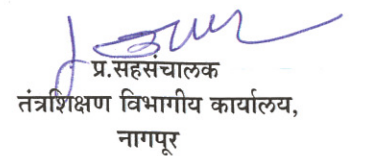 प्र.सहसंचालक
तंत्रशिक्षण विभागीय कार्यालय,
नागपूर